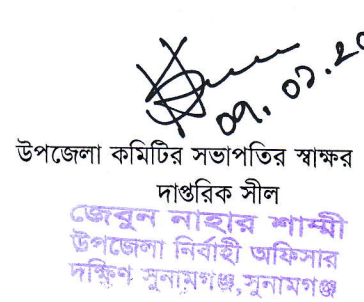 ০৭. ০১. ২০
উপজেলা কমিটির সভাপতির স্বাক্ষর
দাপ্তরিক সীল
জেবুন নাহার শাম্মী
উপজেলা নির্বাহী অফিসার
দক্ষিণ সুনামগঞ্জ,সুনামগঞ্জ